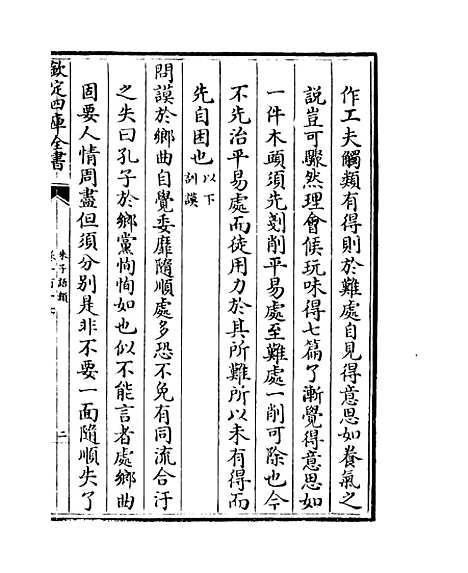 作工夫觸類有得則於難處自見得意思如養氣之
說豈可驟然理會候玩味得七篇了漸覺得意思如
一件木頭須先剗削平易處至難處一削可除也今
不先治平易處而徒用力於其所難所以未有得而
先自困也以下訓謨
問謨於鄉曲自覺委靡隨順處多恐不免有同流合汙
之失曰孔子於鄉黨恂恂如也似不能言者處鄉曲
固要人情周盡但須分別是非不要一面隨順失了
欽定四庫全書
朱子語類
卷一百十七
二